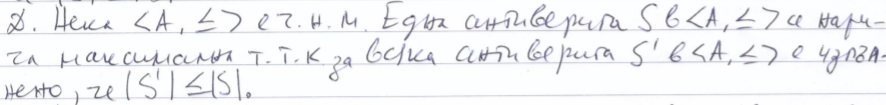 Д. Нека <A, ≤> е ч. н. м. Една антиверига S в <A, ≤> се нари-
ча максимална т. т. к за всяка антиверига S' в <A, ≤> е изпъл-
нено, че |S'| ≤ |S|.